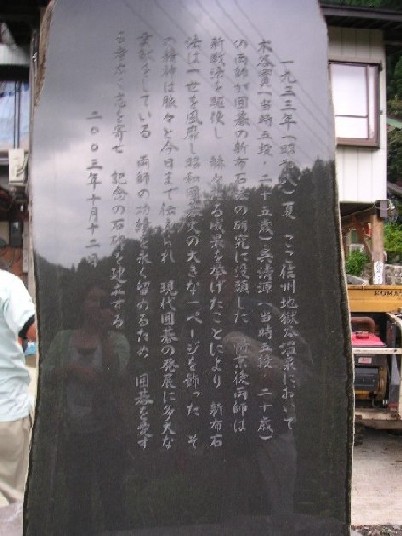 一九三三年(昭和八)夏 ここ信州地獄谷温泉において
木谷實(当時五段・二十五歳)呉清源(当時五段・二十歳)
の両師が囲碁の新布石法の研究に没頭した 帰京後両師は
新戦法を駆使し 赫々たる成果を挙げたことにより 新布石
法は一世を風靡し昭和囲碁史の大きな一ページを飾った そ
の精神は脈々と今日まで伝えられ 現代囲碁の発展に多大な
貢献をしている 両師の功績を永く留めるため 囲碁を愛す
る者たち志を寄せ 記念の石碑を建立する
二〇〇三年十月十二日
KOMA